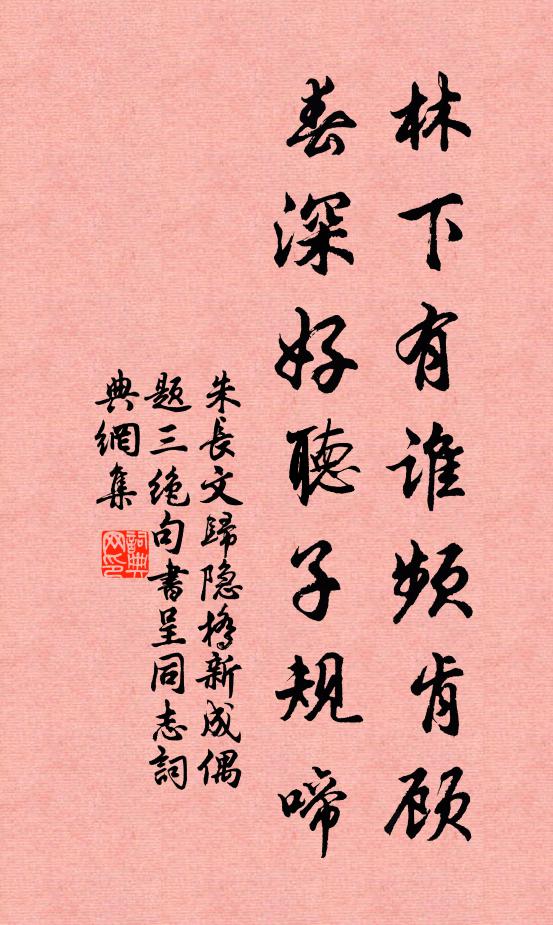 林下有谁频肯顾
春深好聽子規啼
朱長文歸隐橋新成偶
题三绝句書呈同志詞
典網集
詞典
网印